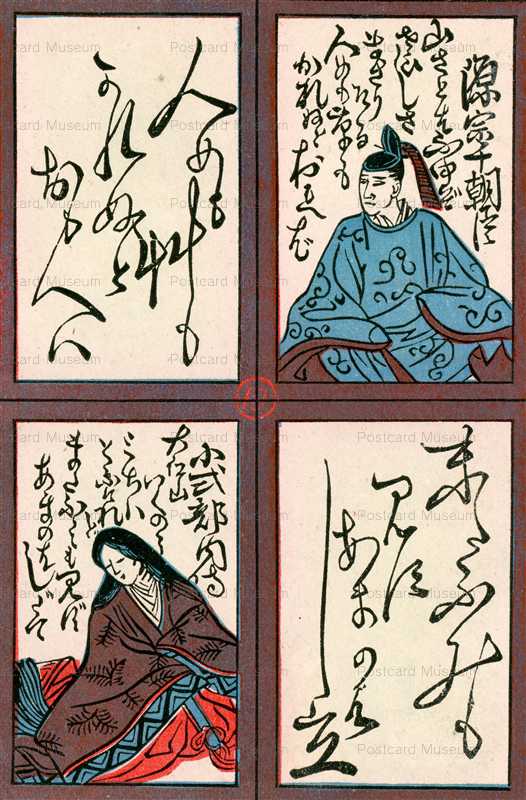 源宗于朝臣
山さとは冬ぞ
さひしさ
まさりける
人めも草も
かれぬとおもへは
人めも艸も
かれぬと
おもへハ
小式部内侍
大江山
いくのゝ
まだふみもみず
あまのはしだて
まだふみも
みす
あまのは
し立
Postcard Museum